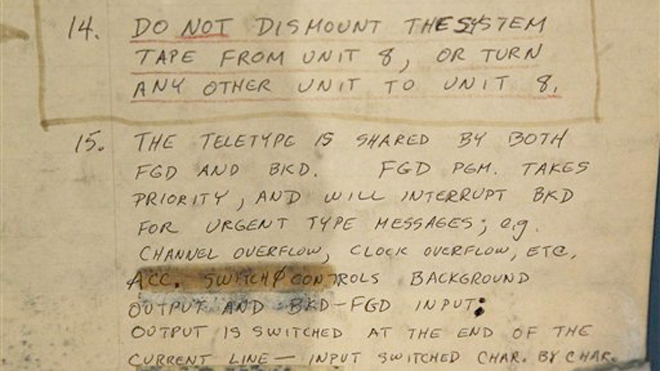 14. DO NOT DISMOUNT THE SYSTEM
TAPE FROM UNIT 8, OR TURN
ANY OTHER UNIT TO UNIT 8.
15. THE TELETYPE IS SHARED BY BOTH
FGD AND BKD. FGD PGM. TAKES
PRIORITY, AND WILL INTERRUPT BKD
FOR URGENT TYPE MESSAGES; e.g.
CHANNEL OVERFLOW, CLOCK OVERFLOW, ETC.
ACC. SWITCH Ø CONTROLS BACKGROUND
OUTPUT AND BKD-FGD INPUT;
OUTPUT IS SWITCHED AT THE END OF THE
CURRENT LINE — INPUT SWITCHED CHAR. BY CHAR.